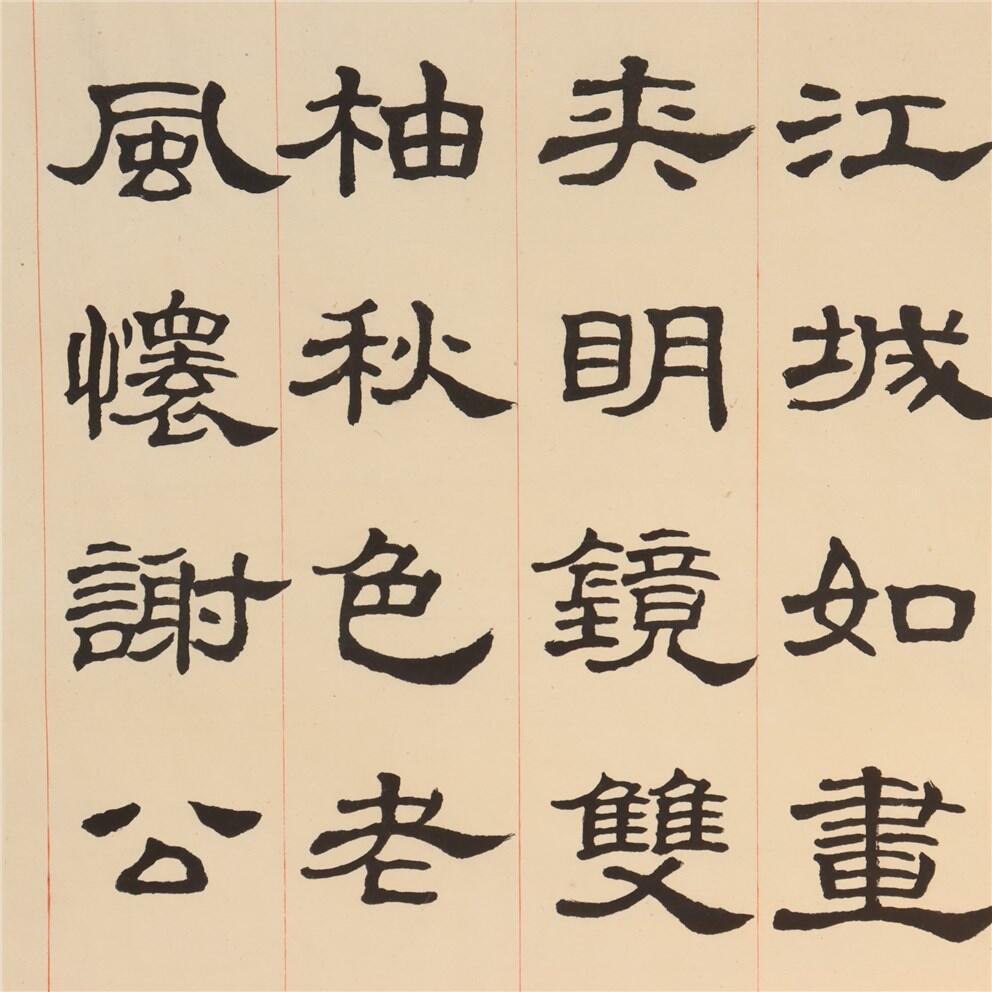 江城如畫
夾明鏡雙
柚秋色老
風懷謝公